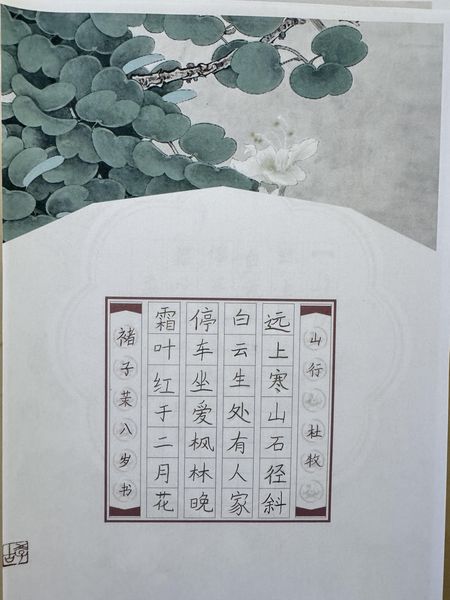 山行 杜牧
远上寒山石径斜
白云生处有人家
停车坐爱枫林晚
霜叶红于二月花
褚子茉八岁书